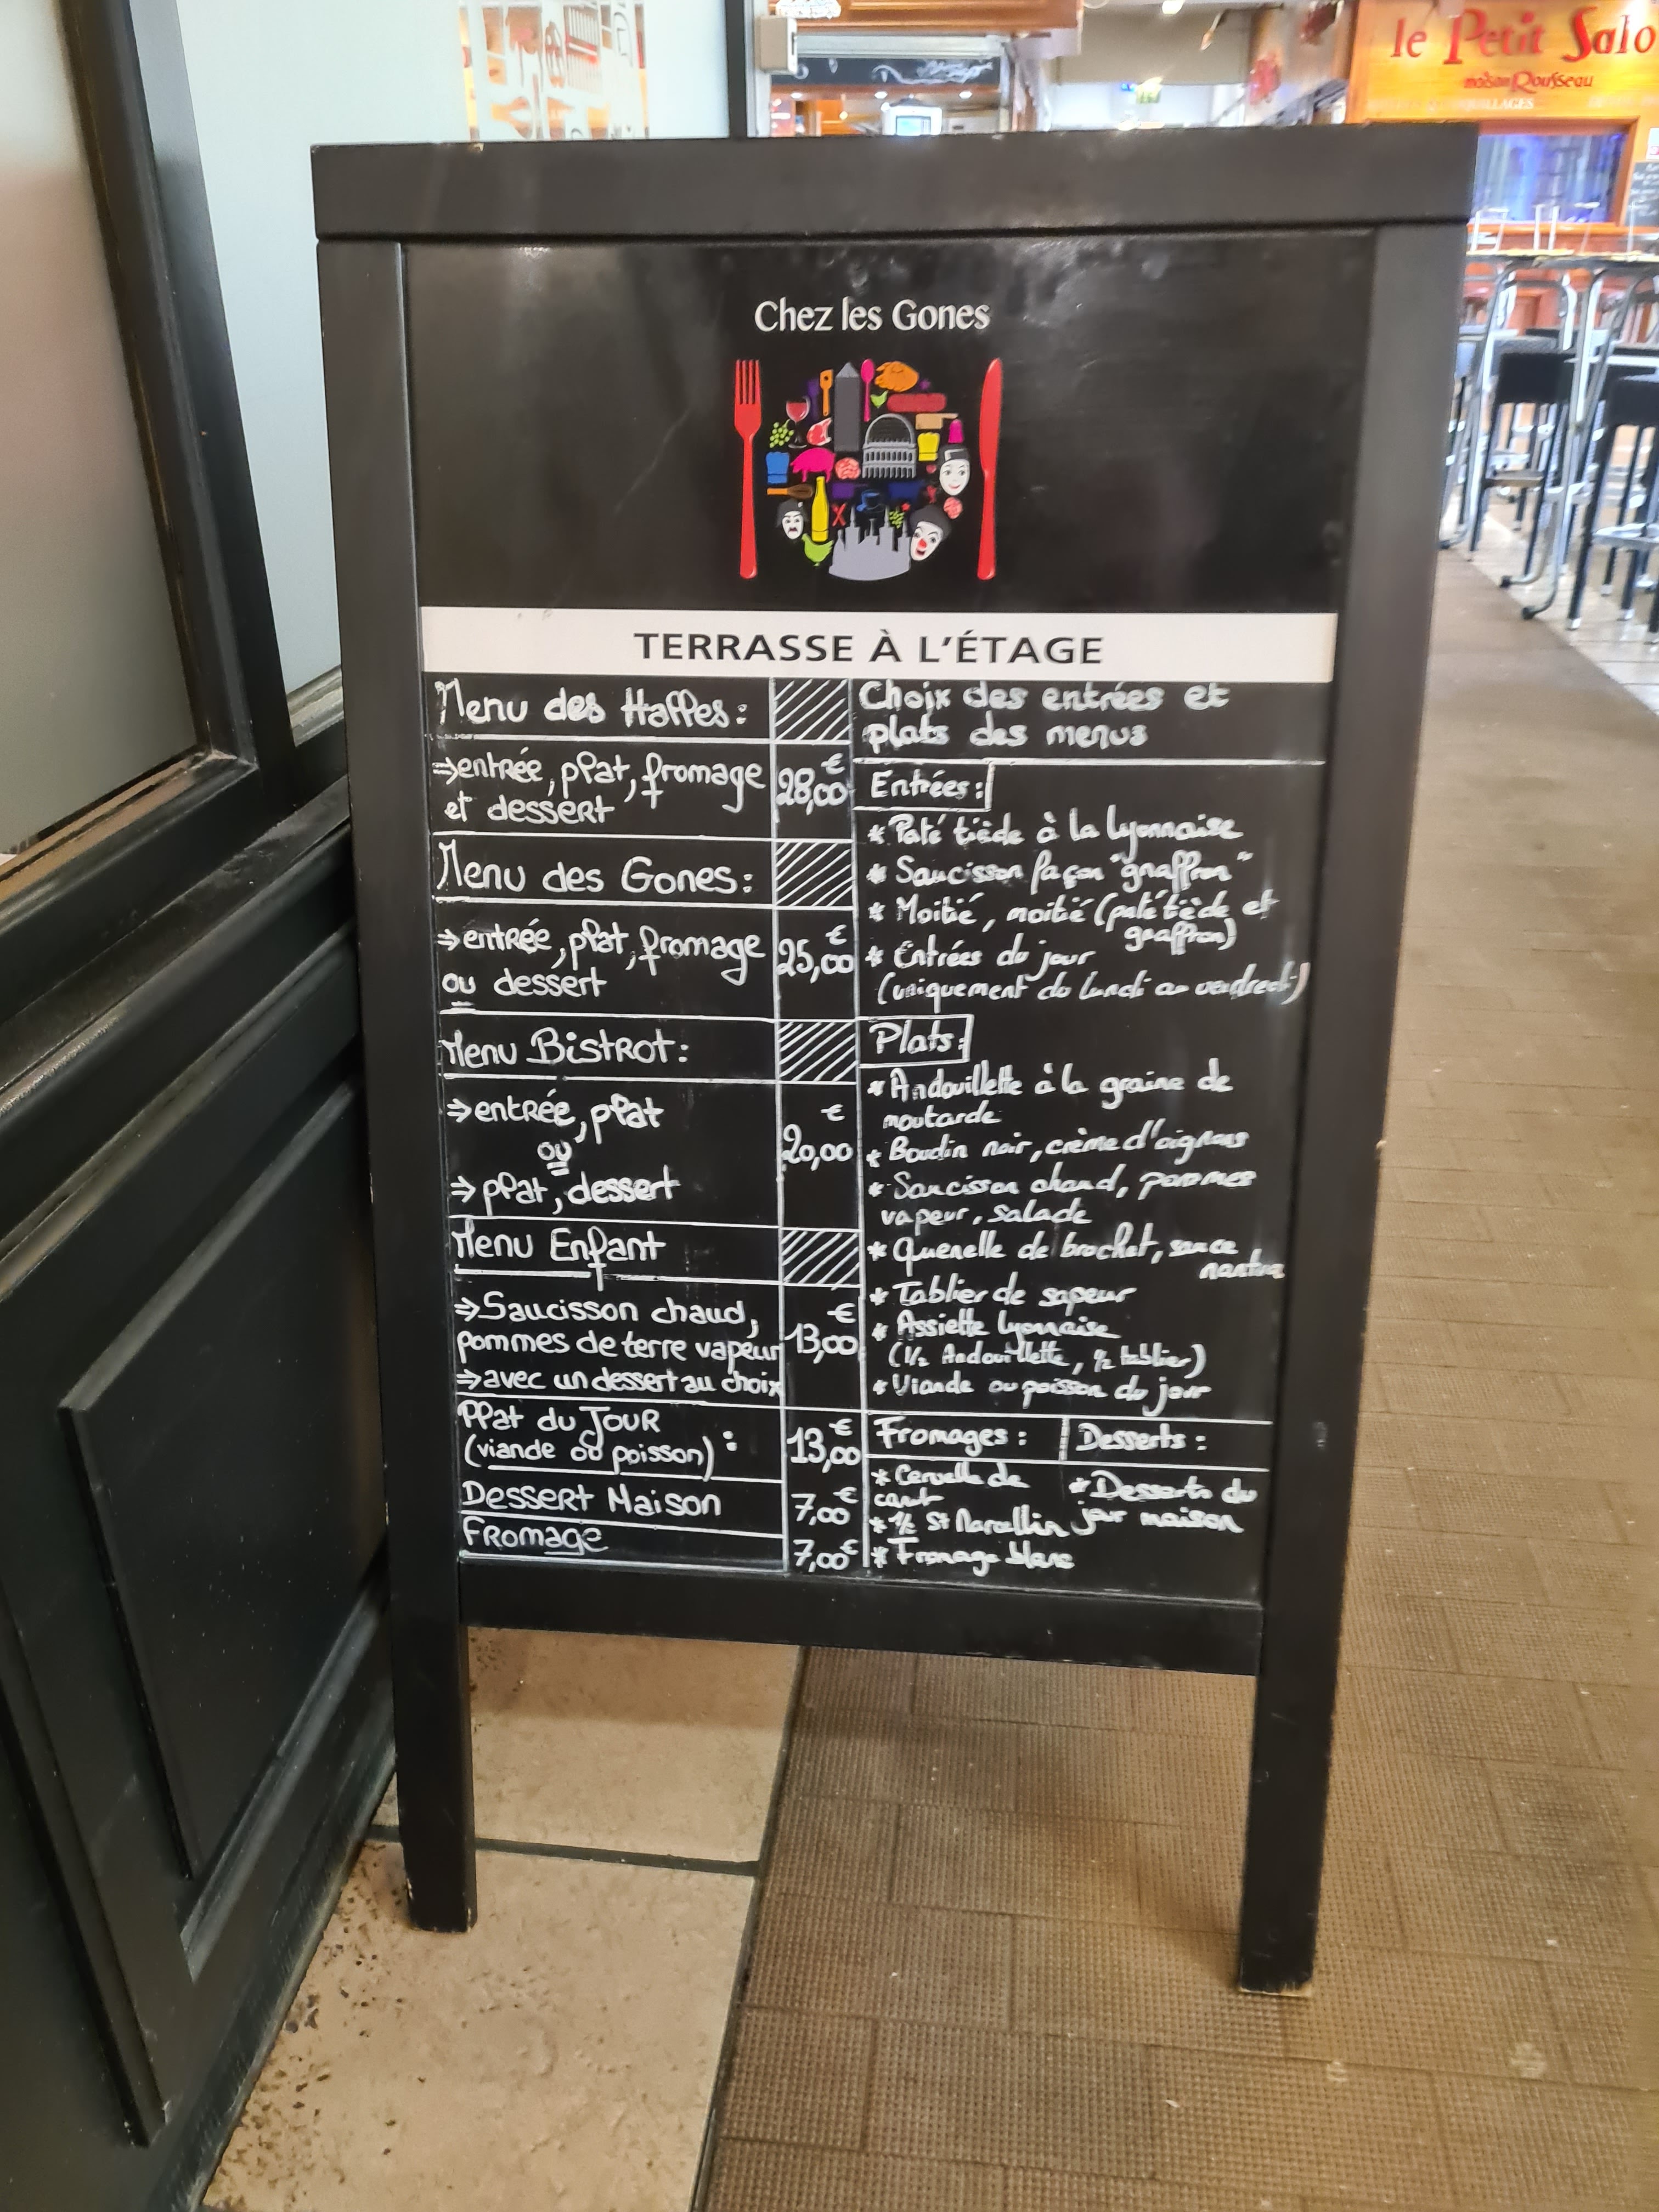 le Petit Salo
maison Rousseau
Chez les Gones
TERRASSE À L'ÉTAGE
Menu des Halles:
⇒entrée, plat, fromage
et dessert
28,00€
Menu des Gones:
⇒entrée, plat, fromage
ou dessert
25,00€
Menu Bistrot:
⇒entrée, plat
ou
⇒plat, dessert
20,00€
Menu Enfant
⇒Saucisson chaud,
pommes de terre vapeur
⇒avec un dessert au choix
13,00€
Plat du Jour
(viande ou poisson) :
13,00€
Dessert Maison
7,00€
Fromage
7,00€
Choix des entrées et
plats des menus
Entrées:
* Paté tiède à la Lyonnaise
* Saucisson façon "gnaffron"
* Moitié, moitié (paté tiède et
gnaffron)
* Entrées du jour
(uniquement du lundi au vendredi)
Plats:
* Andouillette à la graine de
moutarde
* Boudin noir, crème d'oignons
* Saucisson chaud, pommes
vapeur, salade
* Quenelle de brochet, sauce
nantua
* Tablier de sapeur
* Assiette Lyonnaise
(1/2 Andouillette, 1/2 tablier)
* Viande ou poisson du jour
Fromages :
* Cervelle de
canut
* 1/2 St Marcellin
* Fromage blanc
Desserts :
* Desserts du
jour maison